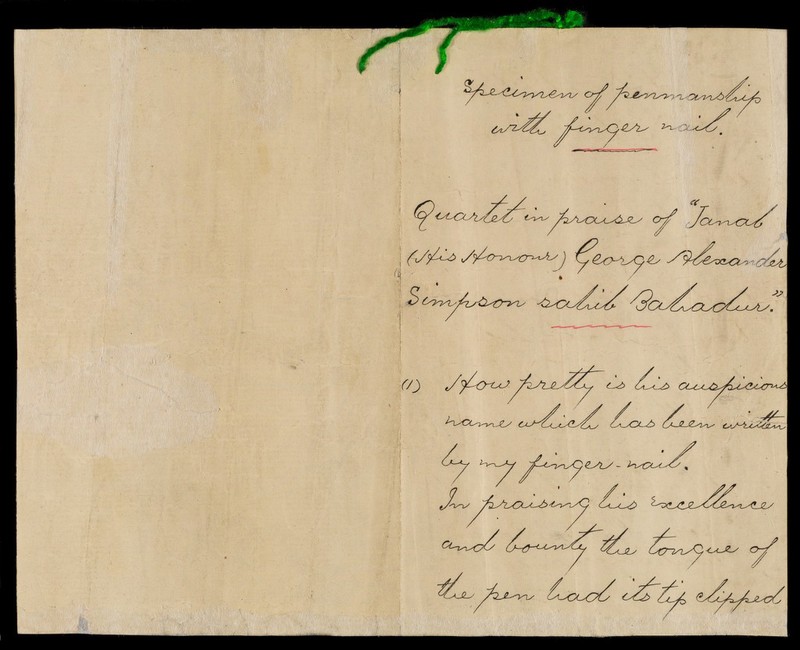 Specimen of penmanship
with finger nail.
Quartet in praise of "Janab
(His Honour) George Alexander
Simpson sahib Bahadur."
(1) How pretty is his auspicious
name which has been written
by my finger-nail.
In praising his excellence
and bounty the tongue of
the pen had its tip clipped